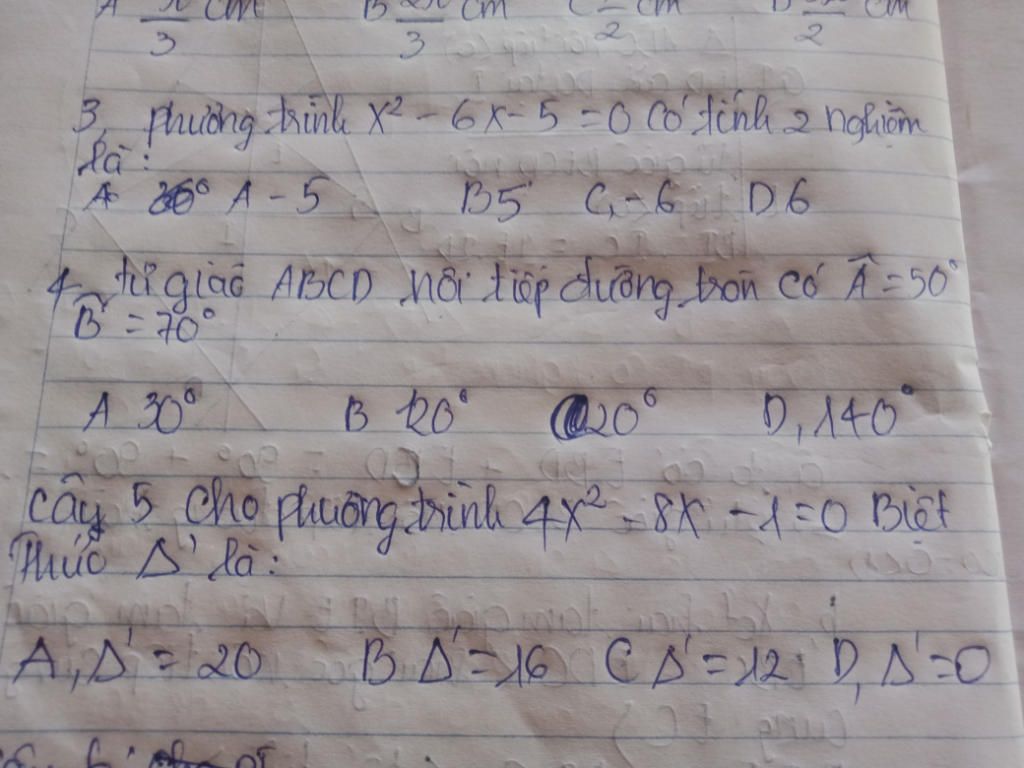 cm B cm C cm D cm
3 3 2 2
3, phương trình x² - 6x - 5 = 0 Có tích 2 nghiệm
là:
A - 5 B 5 C, - 6 D 6
4, tứ giác ABCD nội tiếp đường tròn có Â = 50°
B̂ = 70°
A 30° B 120° C 20° D, 140°
Câu 5 Cho phương trình 4x² - 8x - 1 = 0 Biệt
Thức Δ' là:
A, Δ' = 20 B Δ' = 16 C Δ' = 12 D, Δ' = 0